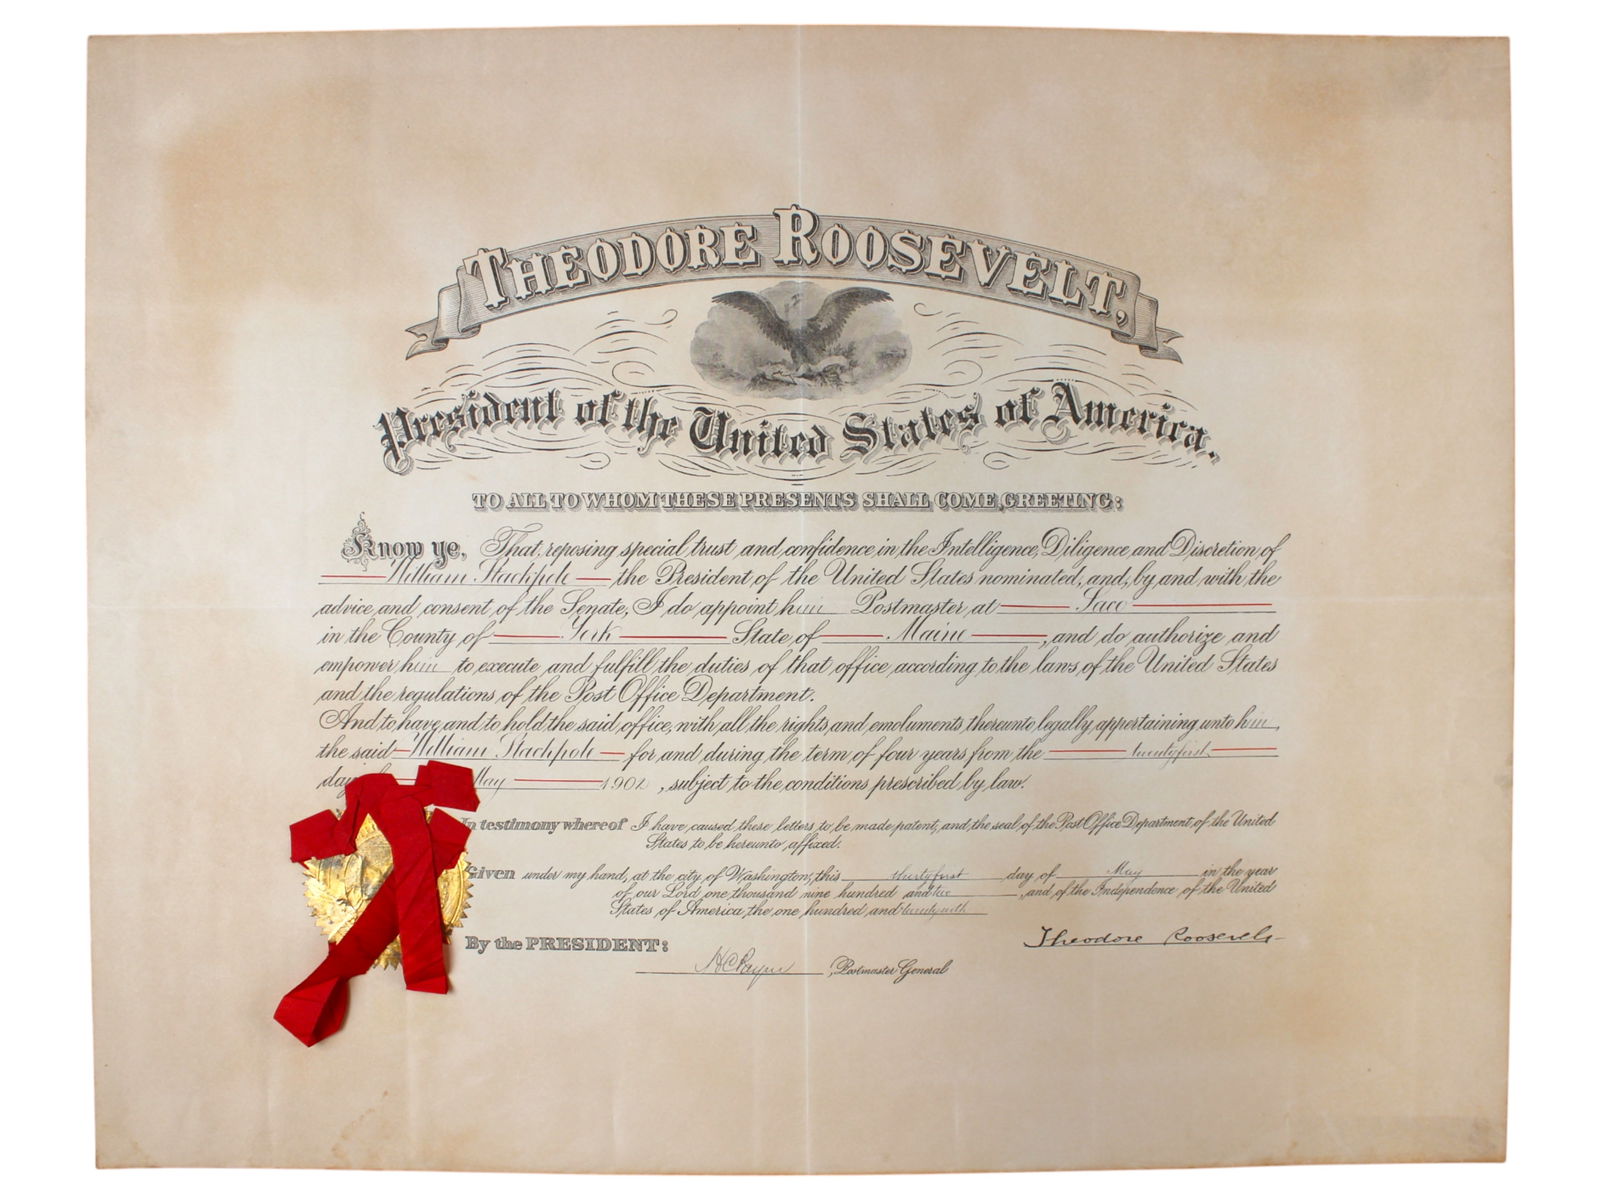 THEODORE ROOSEVELT,
President of the United States of America.
TO ALL TO WHOM THESE PRESENTS SHALL COME, GREETING:
Know ye, That, reposing special trust and confidence in the Intelligence, Diligence and Discretion of
William Stackpole the President of the United States nominated, and, by and with the
advice and consent of the Senate, I do appoint him Postmaster at Saco
in the County of York State of Maine, and do authorize and
empower him to execute and fulfill the duties of that office, according to the laws of the United States
and the regulations of the Post Office Department.
And to have and to hold the said office, with all the rights and emoluments thereunto legally appertaining unto him,
the said William Stackpole for and during the term of four years from the twentyfirst
day May 1902, subject to the conditions prescribed by law.
In testimony whereof I have caused these letters to be made patent, and the seal of the Post Office Department of the United
States to be hereunto affixed.
Given under my hand, at the city of Washington, this thirtyfirst day of May in the year
of our Lord one thousand nine hundred and two, and of the Independence of the United
States of America, the one hundred and twentysixth
By the PRESIDENT:
Theodore Roosevelt
H C Payne, Postmaster General